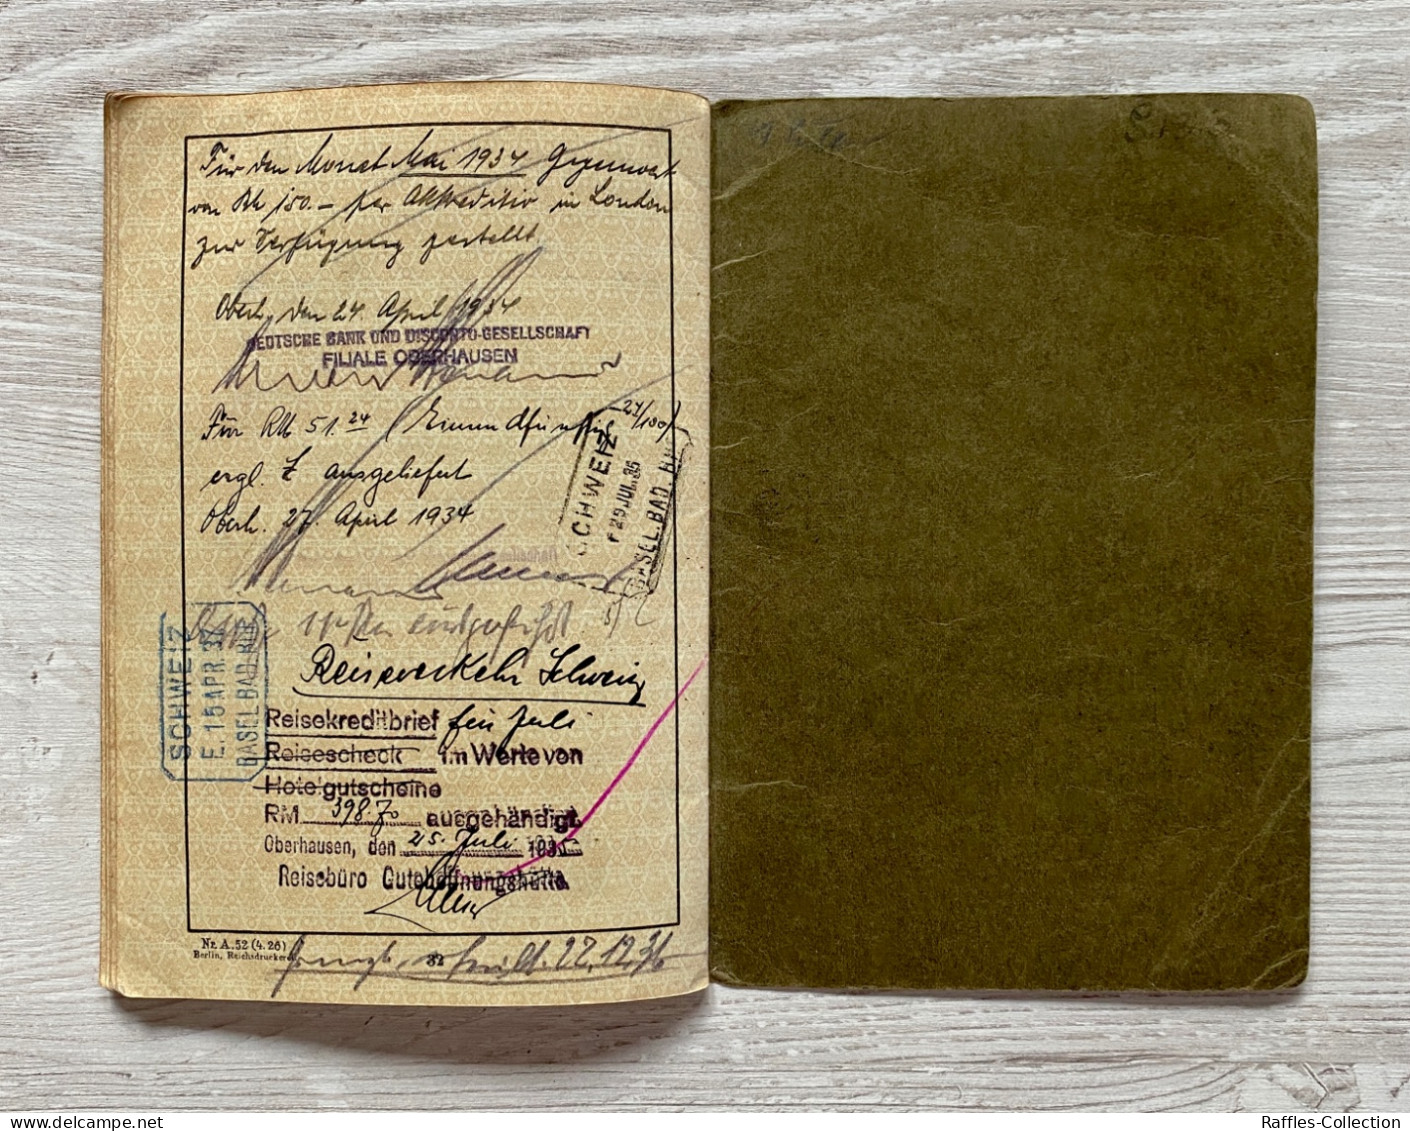 Für den Monat Mai 1934 Gegenwert
von RM 150.– per Akkreditiv in London
zur Verfügung gestellt
Oberh. den 24. April 1934
DEUTSCHE BANK UND DISCONTO-GESELLSCHAFT
FILIALE OBERHAUSEN
Für RM 51.24 (Einundfünfzig 24/100)
ausgeliefert
Oberh. 27. April 1934
SCHWEIZ
29 JUL. 35
BASEL. BAD. BHF
SCHWEIZ
E. 15 APR. 37
BASEL. BAD. BHF
Reiseverkehr Schweiz
Reisekreditbrief für Juli
Reisescheck im Werte von
Hotelgutscheine
RM 398.70 ausgehändigt.
Oberhausen, den 25. Juli 1935
Reisebüro Gutehoffnungshütte
Nr. A. 52 (4. 26)
Berlin, Reichsdruckerei
32
22.12.36
Raffles-Collection